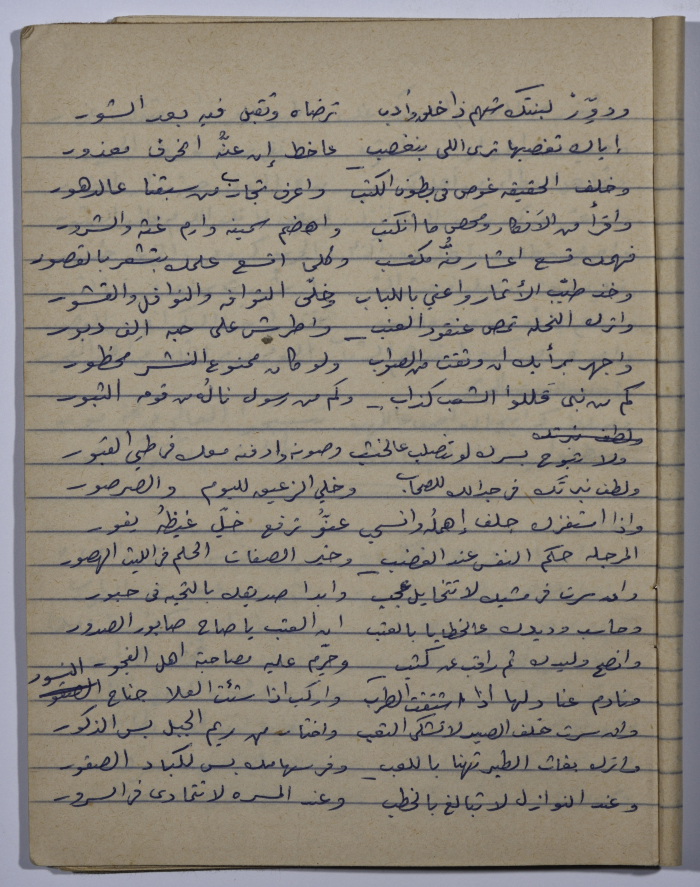 ودوّر لبنتك شهم ذا خلق وأدب ترضاه وتقبل فيه بعد الشور
إياك تغصبها ترى اللي بنغصب عاخط إن عنُّه انحرف معذور
وخلف الحقيقه غوص في بطون الكتب واعرف تجارب من سبقنا عالدهور
واقرأ من الأفكار ومحص ما انكتب واهضم سمينه وارم غثه والشرور
فهمك تسع اعشار منُّه مكتسب وكلى اتسع علمك بتشعر بالقصور
وخذ طيّب الأثمار واعني باللباب وخلّي التوافه والنوافل والقشور
واترك النحله تمص عنقود العنب واطرش على حبه الف دبور
واجهر برأيك ان وثقت من الصواب ولو كان ممنوع النشر محظور
كم من نبي قللوا الشعب كذاب وكم من رسول نالُه من قومه الثبور
ولا تبوح بسرك لو تصلب عالخشب وصونه وادفنه معك في طي القبور
ولطف نباتك في جدالك للصحاب وخلي الزعيق للبوم والصرصور
واذا استفزك جلف إهملُه وانسي عنَّو ترفع خلّي غيظهُ يفور
المرجله حكم النفس عند الغضب وخير الصفات الحلم في الليث الهصور
وان سرت في مشيك لا تتخايل عجب وابدا صديقك بالتحيه في حبور
وحاسب وديدك عالخطايا بالعتب ان العتب يا صاح صابور الصدور
وانصح وليدك ثم راقب عن كثب وحرّم عليه مصاحبة اهل الفجور
ونادم عنادلها اذا اشتقت الطرب واركب اذا شئت العلا جناح النسور
وان سرت خلف الصيد لا تشكي التعب واختار من ريم الجبل بس الذكور
واترك بغاث الطير تهنا باللعب وفر سهامك بس لكباد الصقور
وعند النوازل لا تبالغ بالخطب وعند المسره لا تتمادى في السرور